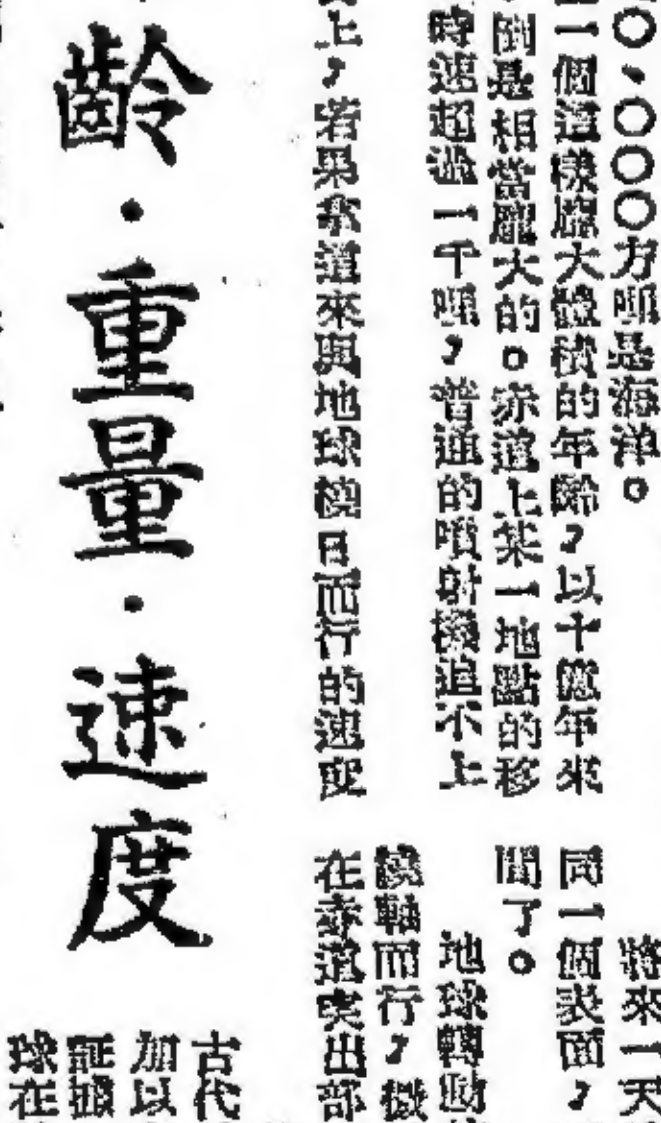 〇、〇〇〇方哩是海洋。
一個這樣龐大體積的年齡，以十億年來
倒是相當龐大的。赤道上某一地點的移
時速超過一千哩，普通的噴射機追不上
上，若果拿道來與地球繞日而行的速度
將來一天
同一個表面，
間了。
地球轉動
繞軸而行，
在赤道突出部
齡·重量·速度
古代
加以
証據
球在